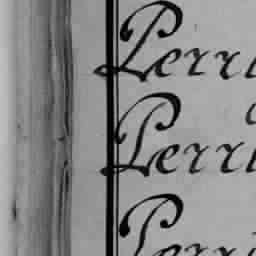 Perri
Perri
Perri